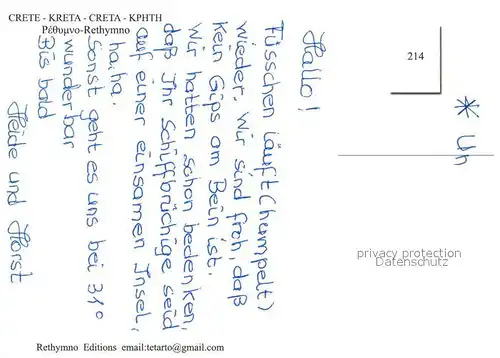 CRETE - KRETA - CRETA - ΚΡΗΤΗ
Ρέθυμνο-Rethymno
214
Hallo!
Füsschen läuft (humpelt)
wieder. Wir sind froh, daß
kein Gips am Bein ist.
Wir hatten schon bedenken,
daß Ihr Schiffbrüchige seid
auf einer einsamen Insel,
haha.
Sonst geht es uns bei 31°
wunderbar
Bis bald
Heide und Horst
* Uh
privacy protection
Datenschutz
Rethymno Editions email:tetarto@gmail.com